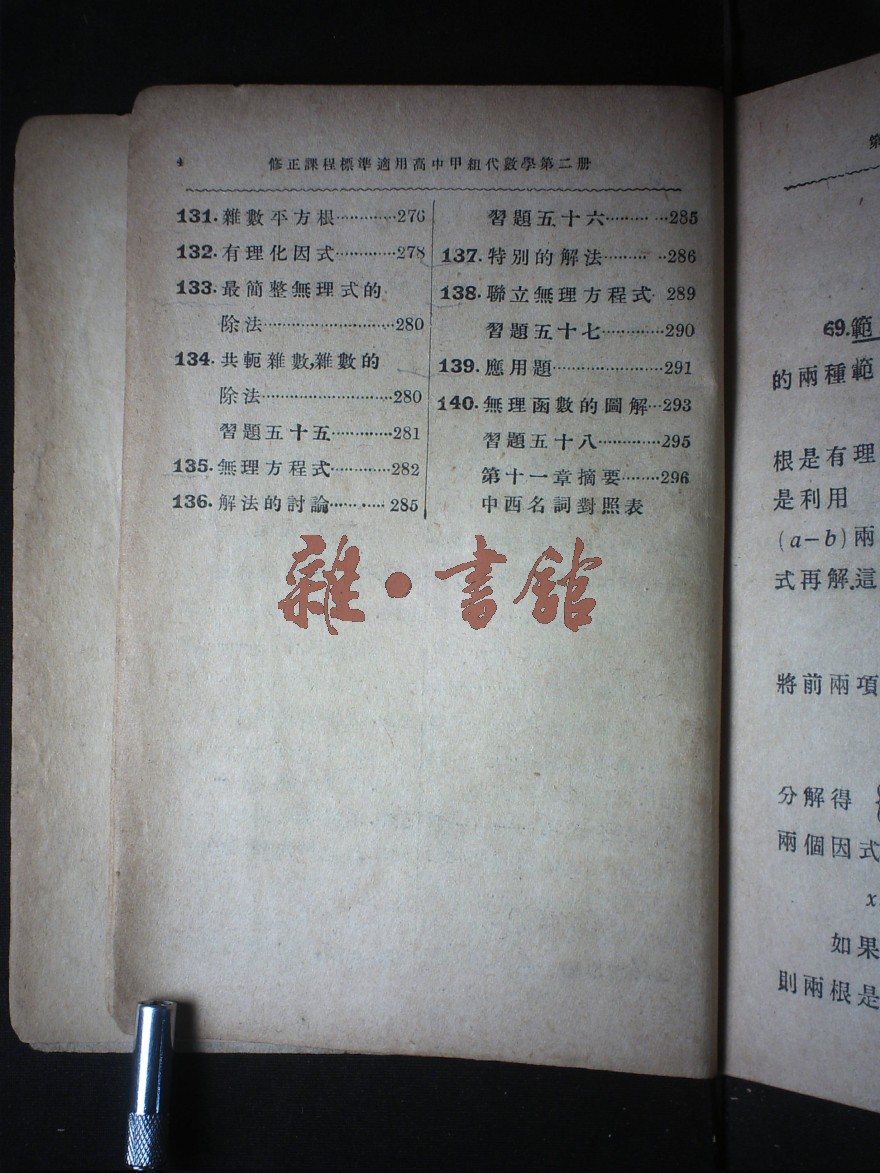 4
修正課程標準適用高中甲組代數學第二册
131. 雜數平方根…………276
132. 有理化因式…………278
133. 最簡整無理式的
除法……………………280
134. 共軛雜數,雜數的
除法……………………280
習題五十五…………281
135. 無理方程式…………282
136. 解法的討論………285
習題五十六………285
137. 特別的解法………286
138. 聯立無理方程式 289
習題五十七…………290
139. 應用題……………………291
140. 無理函數的圖解…293
習題五十八…………295
第十一章摘要………296
中西名詞對照表
雜·書館
第
69.範
的兩種範
根是有理
是利用
(a-b)兩
式再解.這
將前兩項
分解得
兩個因式
x
如果
則兩根是